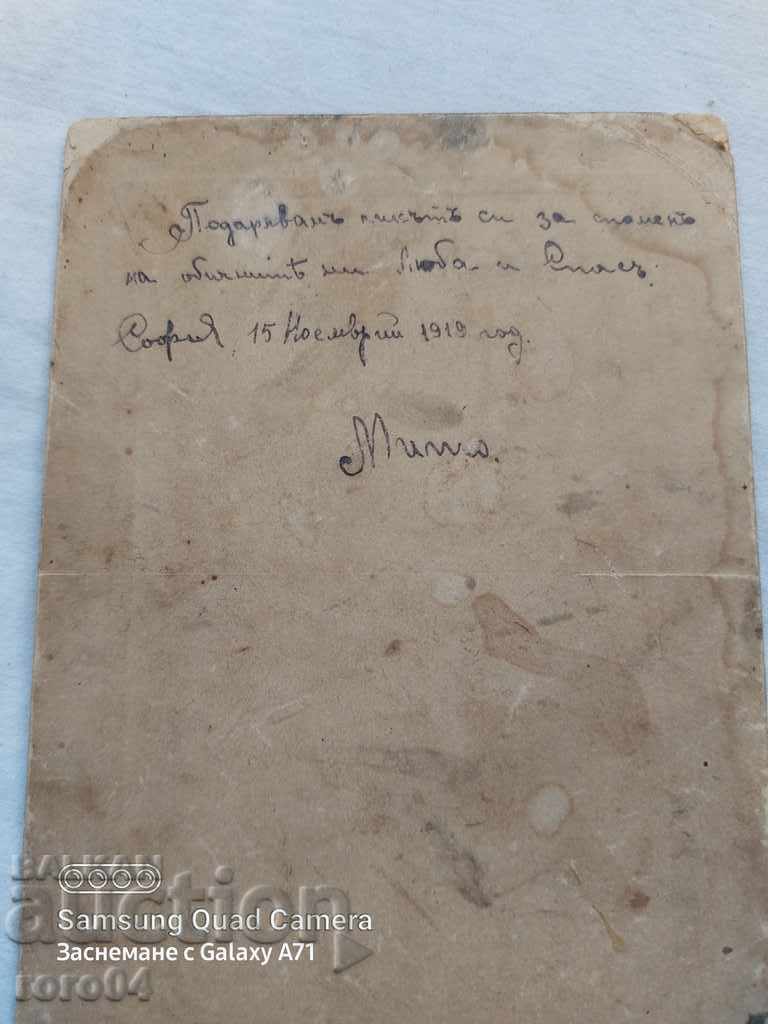 Подарявамъ ликътъ си за споменъ
на обичнитѣ ми Люба и Спасъ.
София, 15 Ноемврий 1919 год.
Мито.
BALKAN
auction
Samsung Quad Camera
Заснемане с Galaxy A71
roro04